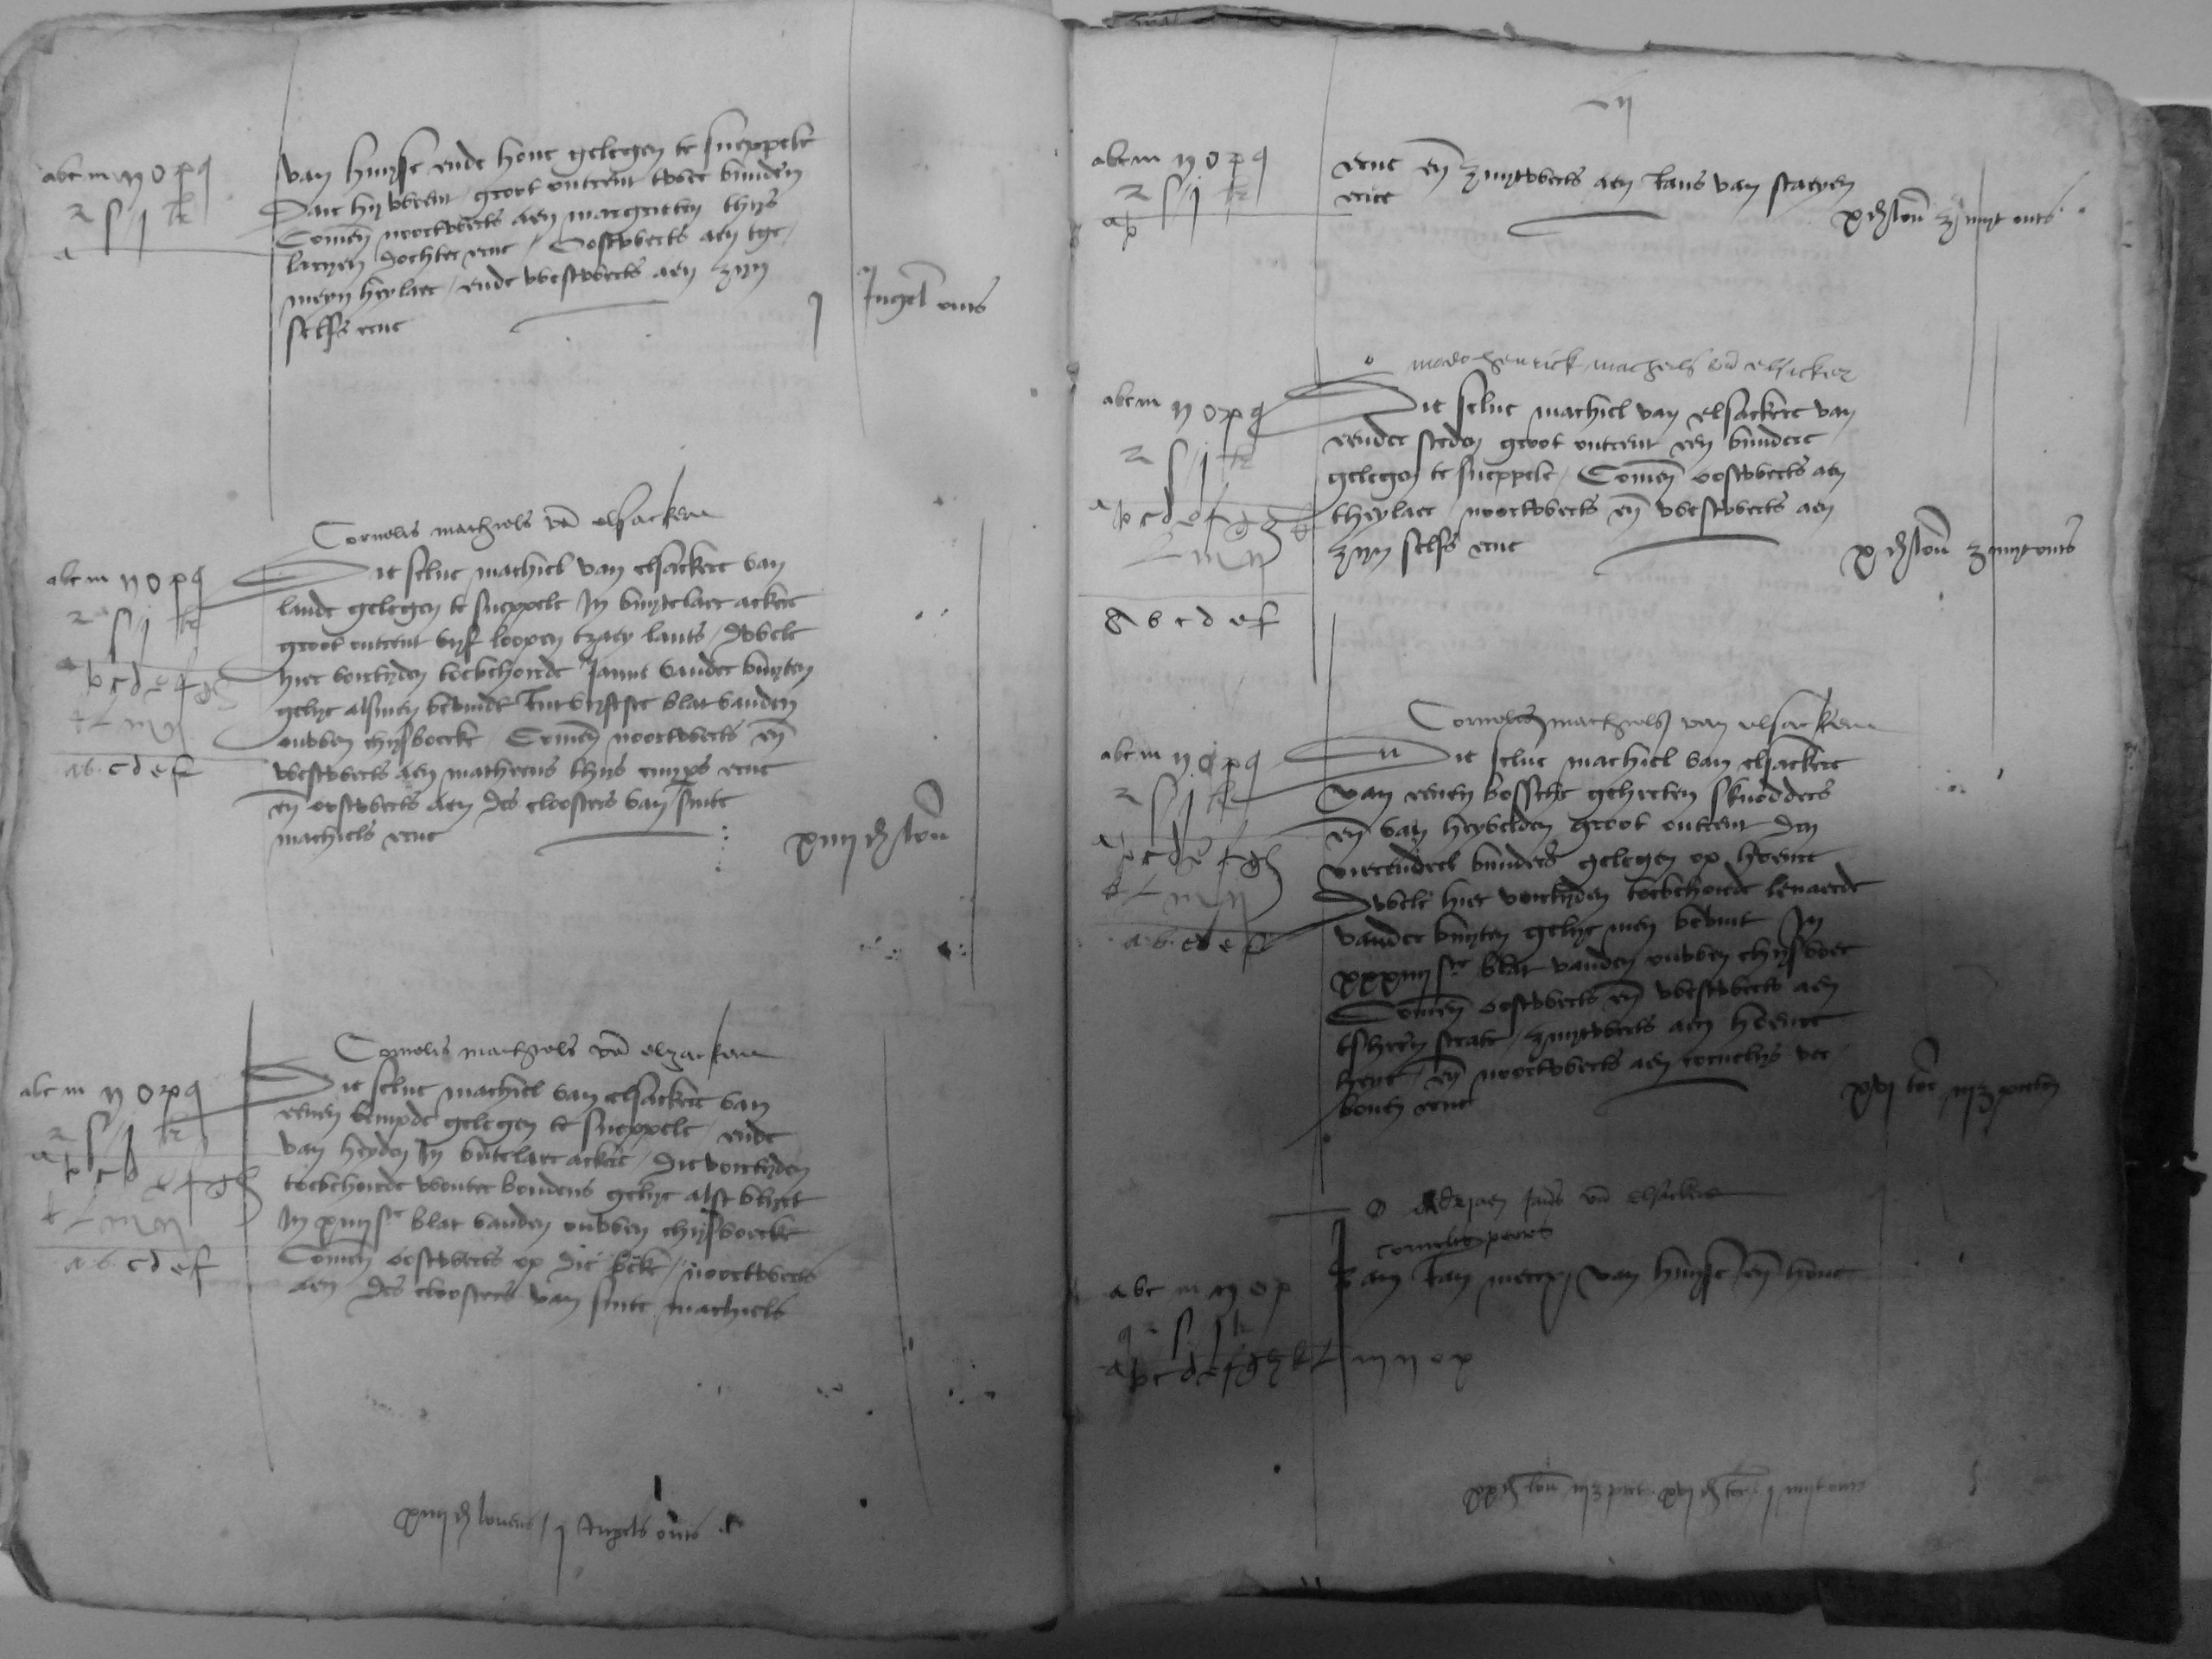 abc m n o p q
r s j k
a
van huyse ende hove gelegen te sneppelt
Daer hij woent groot ontrent twee bunderen
Comen noortwerts aen margrieten thijs
laryen dochter erve / Oostwerts aen tge
meyn heylaer / ende westwerts aen zijn
selfs erve
j Ingels outs
Cornelis machiels van elsacker
abc m n o p q
r s j k
a b c d e f g h
k l m n
a b c d e f
Die selve machiel van elsacker van
lande gelegen te sneppelt In buytelaer acker
groot ontrent vijf loopen tzaey lants / Dwelc
hier vortijden toebehoorde Janne vander buyten
gelijc alsmen bevindt Int vijfste blat vanden
ouwen chijsboecke Comen noortwerts en
westwerts aen matheeus thijs erve
en oostwerts aen des cloosters van sinte
machiels erve
xiiij d lovens
Cornelis machiels van elsacker
abc m n o p q
r s j k
a b c d e f g h
k l m n
a b c d e f
Die selve machiel van elsacker van
eenen bempde gelegen te sneppelt / ende
van heyden In buitelaer acker / die vortijden
toebehoorde wouter boudens gelijc alst blijct
In xiiij ste blat vanden ouwen chijsboecke
Comen oostwerts op die beke / noortwerts
aen des cloosters van sinte machiels
xiiij d lovens / j Ingels outs
vij
abc m n o p q
r s j k
a b
erve en zuytwerts aen Jans van staeyen
erve
x d lovens
modo henrick machiels van elsacker
abc m n o p q
r s j k
a b c d e f g h k
l m n
a b c d e f
Die selve machiel van elsacker van
eender steden groot ontrent een bunder
gelegen te sneppelt / Comen oostwerts aen
theylaer / noortwerts en westwerts aen
zijn selfs erve
x d lovens
Cornelis machiels van elsacker
abc m n o p q
r s j k
a b c d e f g h
k l m n
a b c d e f
Die selve machiel van elsacker
van eenen bossche geheeten
en van heyvelden groot ontrent drij
vierendeel bunders gelegen op hoenre
Dwelc hier vortijden toebehoorde lenaerde
vander buyten gelijc men bevint In
xxxiiij ste blat vanden ouwen chijsboec
Comen oostwerts en westwerts aen
tsheeren strate / zuytwerts aen hoenre
heyde / en noortwerts aen cornelijs ver
erve
Adriaen Jans van elsacker
cornelis peeters
abc m n o p
q r s j k
a b c d e f g h k l m n o p
van Jan van huyse en hove